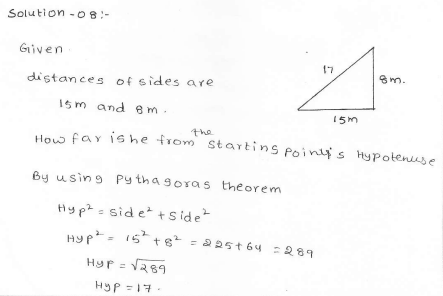 Solution -08:-
Given
distances of sides are
15m and 8m.
17
8m.
15m
How far is he from the starting point is Hypotenuse
By using Pythagoras theorem
Hyp² = side² + side²
Hyp² = 15² + 8² = 225 + 64 = 289
Hyp = √289
Hyp = 17.